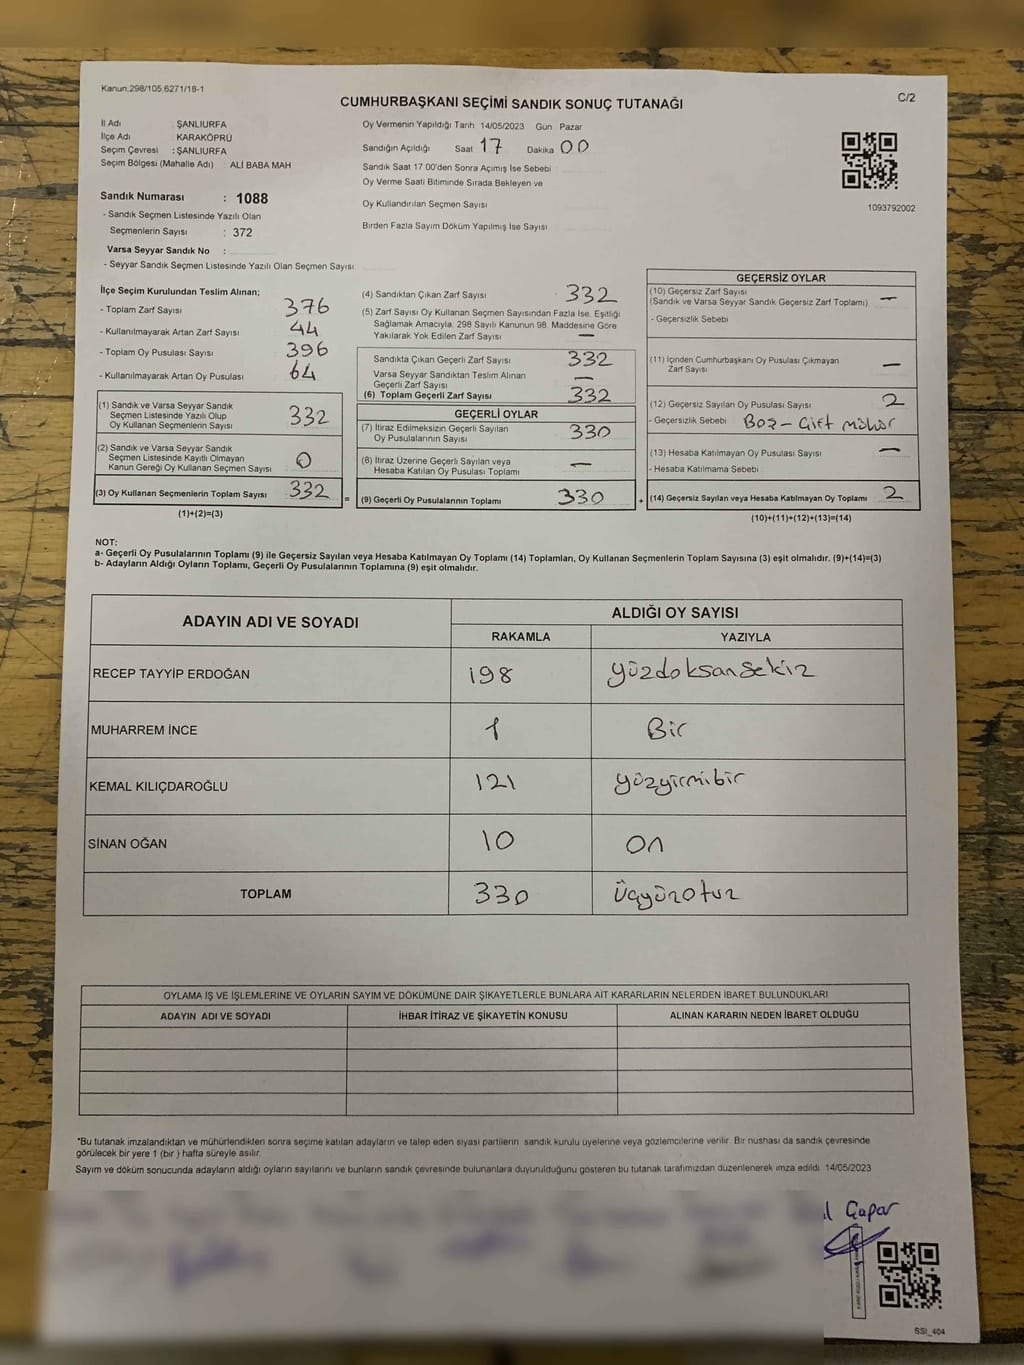 Kanun:298/105,6271/18-1
CUMHURBAŞKANI SEÇİMİ SANDIK SONUÇ TUTANAĞI
C/2
İl Adı : ŞANLIURFA
İlçe Adı : KARAKÖPRÜ
Seçim Çevresi : ŞANLIURFA
Seçim Bölgesi (Mahalle Adı) : ALİ BABA MAH
Sandık Numarası : 1088
- Sandık Seçmen Listesinde Yazılı Olan
Seçmenlerin Sayısı : 372
Varsa Seyyar Sandık No :
- Seyyar Sandık Seçmen Listesinde Yazılı Olan Seçmen Sayısı
Oy Vermenin Yapıldığı Tarih 14/05/2023 Gün Pazar
Sandığın Açıldığı Saat 17 Dakika 00
Sandık Saat 17:00'den Sonra Açımış İse Sebebi
Oy Verme Saati Bitiminde Sırada Bekleyen ve
Oy Kullandırılan Seçmen Sayısı
Birden Fazla Sayım Döküm Yapılmış İse Sayısı
1093792002
İlçe Seçim Kurulundan Teslim Alınan;
- Toplam Zarf Sayısı 376
- Kullanılmayarak Artan Zarf Sayısı 44
- Toplam Oy Pusulası Sayısı 396
- Kullanılmayarak Artan Oy Pusulası 64
(1) Sandık ve Varsa Seyyar Sandık
Seçmen Listesinde Yazılı Olup
Oy Kullanan Seçmenlerin Sayısı 332
(2) Sandık ve Varsa Seyyar Sandık
Seçmen Listesinde Kayıtlı Olmayan
Kanun Gereği Oy Kullanan Seçmen Sayısı 0
(3) Oy Kullanan Seçmenlerin Toplam Sayısı 332 =
(1)+(2)=(3)
(4) Sandıktan Çıkan Zarf Sayısı 332
(5) Zarf Sayısı Oy Kullanan Seçmen Sayısından Fazla İse, Eşitliği
Sağlamak Amacıyla, 298 Sayılı Kanunun 98. Maddesine Göre
Yakılarak Yok Edilen Zarf Sayısı —
Sandıkta Çıkan Geçerli Zarf Sayısı 332
Varsa Seyyar Sandıktan Teslim Alınan
Geçerli Zarf Sayısı —
(6) Toplam Geçerli Zarf Sayısı 332
GEÇERLİ OYLAR
(7) İtiraz Edilmeksizin Geçerli Sayılan
Oy Pusulalarının Sayısı 330
(8) İtiraz Üzerine Geçerli Sayılan veya
Hesaba Katılan Oy Pusulası Toplamı —
(9) Geçerli Oy Pusulalarının Toplamı 330 +
GEÇERSİZ OYLAR
(10) Geçersiz Zarf Sayısı
(Sandık ve Varsa Seyyar Sandık Geçersiz Zarf Toplamı) —
- Geçersizlik Sebebi
(11) İçinden Cumhurbaşkanı Oy Pusulası Çıkmayan
Zarf Sayısı —
(12) Geçersiz Sayılan Oy Pusulası Sayısı 2
- Geçersizlik Sebebi Boş - Çift mühür
(13) Hesaba Katılmayan Oy Pusulası Sayısı —
- Hesaba Katılmama Sebebi
(14) Geçersiz Sayılan veya Hesaba Katılmayan Oy Toplamı 2
(10)+(11)+(12)+(13)=(14)
NOT:
a- Geçerli Oy Pusulalarının Toplamı (9) ile Geçersiz Sayılan veya Hesaba Katılmayan Oy Toplamı (14) Toplamları, Oy Kullanan Seçmenlerin Toplam Sayısına (3) eşit olmalıdır. (9)+(14)=(3)
b- Adayların Aldığı Oyların Toplamı, Geçerli Oy Pusulalarının Toplamına (9) eşit olmalıdır.
ADAYIN ADI VE SOYADI
ALDIĞI OY SAYISI
RAKAMLA YAZIYLA
RECEP TAYYİP ERDOĞAN 198 yüzdoksansekiz
MUHARREM İNCE 1 Bir
KEMAL KILIÇDAROĞLU 121 yüzyirmibir
SİNAN OĞAN 10 On
TOPLAM 330 Üçyüzotuz
OYLAMA İŞ VE İŞLEMLERİNE VE OYLARIN SAYIM VE DÖKÜMÜNE DAİR ŞİKAYETLERLE BUNLARA AİT KARARLARIN NELERDEN İBARET BULUNDUKLARI
ADAYIN ADI VE SOYADI İHBAR İTİRAZ VE ŞİKAYETİN KONUSU ALINAN KARARIN NEDEN İBARET OLDUĞU
*Bu tutanak imzalandıktan ve mühürlendikten sonra seçime katılan adayların ve talep eden siyasi partilerin sandık kurulu üyelerine veya gözlemcilerine verilir. Bir nushası da sandık çevresinde
görülecek bir yere 1 (bir ) hafta süreyle asılır.
Sayım ve döküm sonucunda adayların aldığı oyların sayılarını ve bunların sandık çevresinde bulunanlara duyurulduğunu gösteren bu tutanak tarafımızdan düzenlenerek imza edildi. 14/05/2023
Çapar
SSI_404